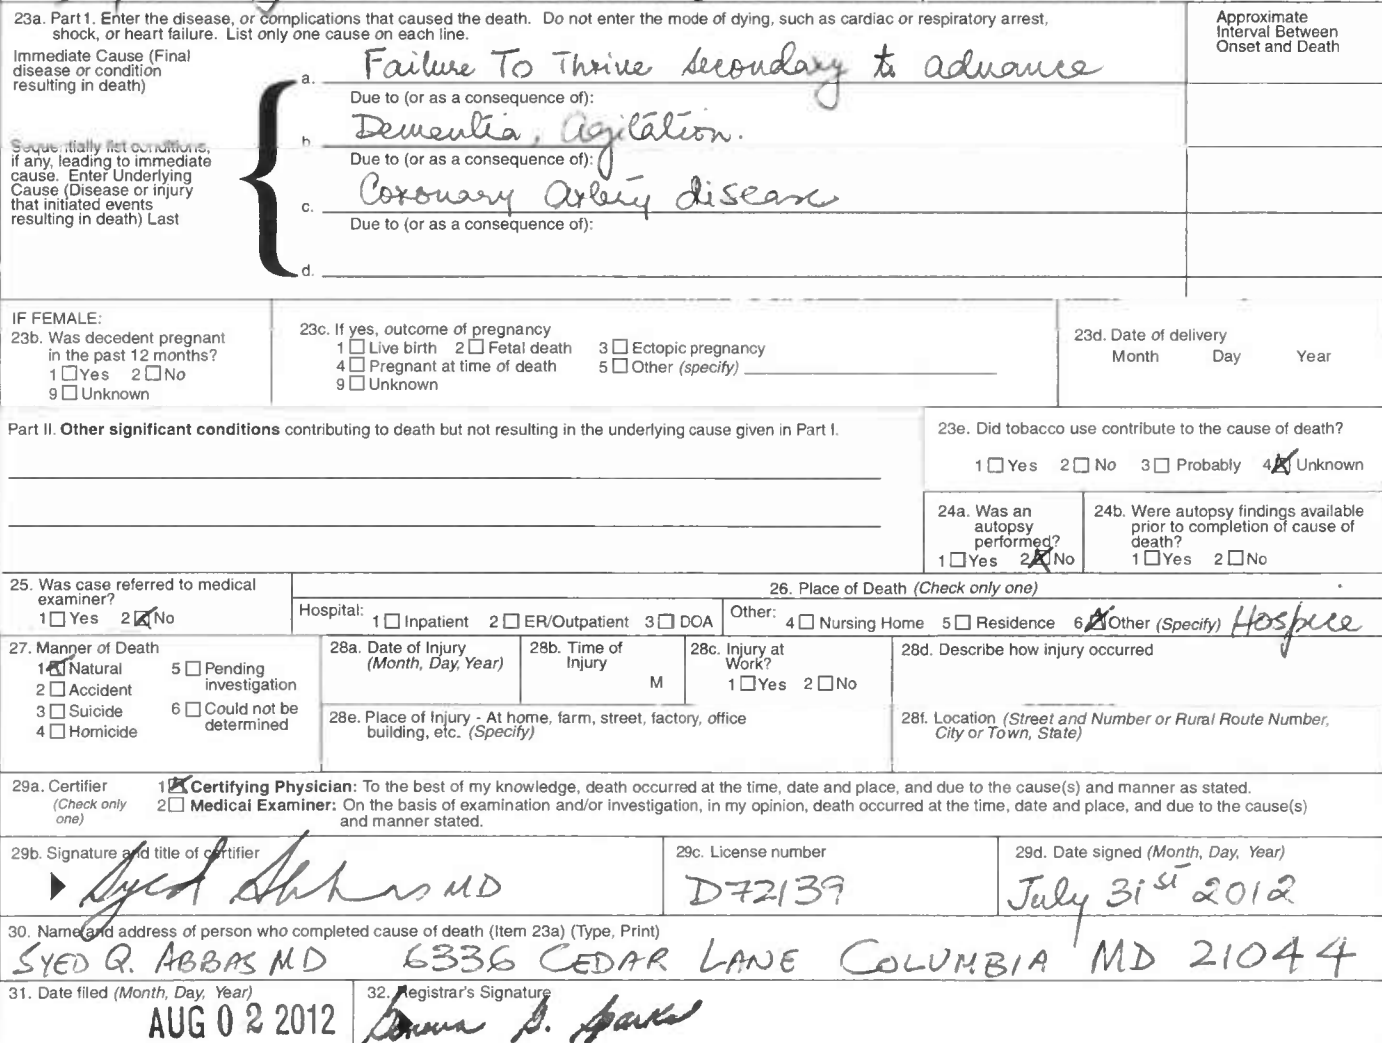 23a. Part 1. Enter the disease, or complications that caused the death. Do not enter the mode of dying, such as cardiac or respiratory arrest,
shock, or heart failure. List only one cause on each line.
Approximate
Interval Between
Onset and Death
Immediate Cause (Final
disease or condition
resulting in death)
a. Failure To Thrive secondary to advance
Due to (or as a consequence of):
Sequentially list conditions,
if any, leading to immediate
cause. Enter Underlying
Cause (Disease or injury
that initiated events
resulting in death) Last
b Dementia, Agitation.
Due to (or as a consequence of):
c. Coronary Artery disease
Due to (or as a consequence of):
d.
IF FEMALE:
23b. Was decedent pregnant
in the past 12 months?
1 Yes 2 No
9 Unknown
23c. If yes, outcome of pregnancy
1 Live birth 2 Fetal death 3 Ectopic pregnancy
4 Pregnant at time of death 5 Other (specify)
9 Unknown
23d. Date of delivery
Month Day Year
Part II. Other significant conditions contributing to death but not resulting in the underlying cause given in Part I.
23e. Did tobacco use contribute to the cause of death?
1 Yes 2 No 3 Probably 4 Unknown
24a. Was an
autopsy
performed?
1 Yes 2 No
24b. Were autopsy findings available
prior to completion of cause of
death?
1 Yes 2 No
25. Was case referred to medical
examiner?
1 Yes 2 No
26. Place of Death (Check only one)
Hospital: 1 Inpatient 2 ER/Outpatient 3 DOA
Other: 4 Nursing Home 5 Residence 6 Other (Specify) Hospice
27. Manner of Death
1 Natural 5 Pending
investigation
2 Accident
3 Suicide 6 Could not be
determined
4 Homicide
28a. Date of Injury
(Month, Day, Year)
28b. Time of
Injury
M
28c. Injury at
Work?
1 Yes 2 No
28d. Describe how injury occurred
28e. Place of Injury - At home, farm, street, factory, office
building, etc. (Specify)
28f. Location (Street and Number or Rural Route Number,
City or Town, State)
29a. Certifier
(Check only
one)
1 Certifying Physician: To the best of my knowledge, death occurred at the time, date and place, and due to the cause(s) and manner as stated.
2 Medical Examiner: On the basis of examination and/or investigation, in my opinion, death occurred at the time, date and place, and due to the cause(s)
and manner stated.
29b. Signature and title of certifier
Syed Abbas MD
29c. License number
D72139
29d. Date signed (Month, Day, Year)
July 31st 2012
30. Name and address of person who completed cause of death (Item 23a) (Type, Print)
SYED Q. ABBAS MD 6336 CEDAR LANE COLUMBIA MD 21044
31. Date filed (Month, Day, Year)
AUG 02 2012
32. Registrar's Signature
S. Sparks